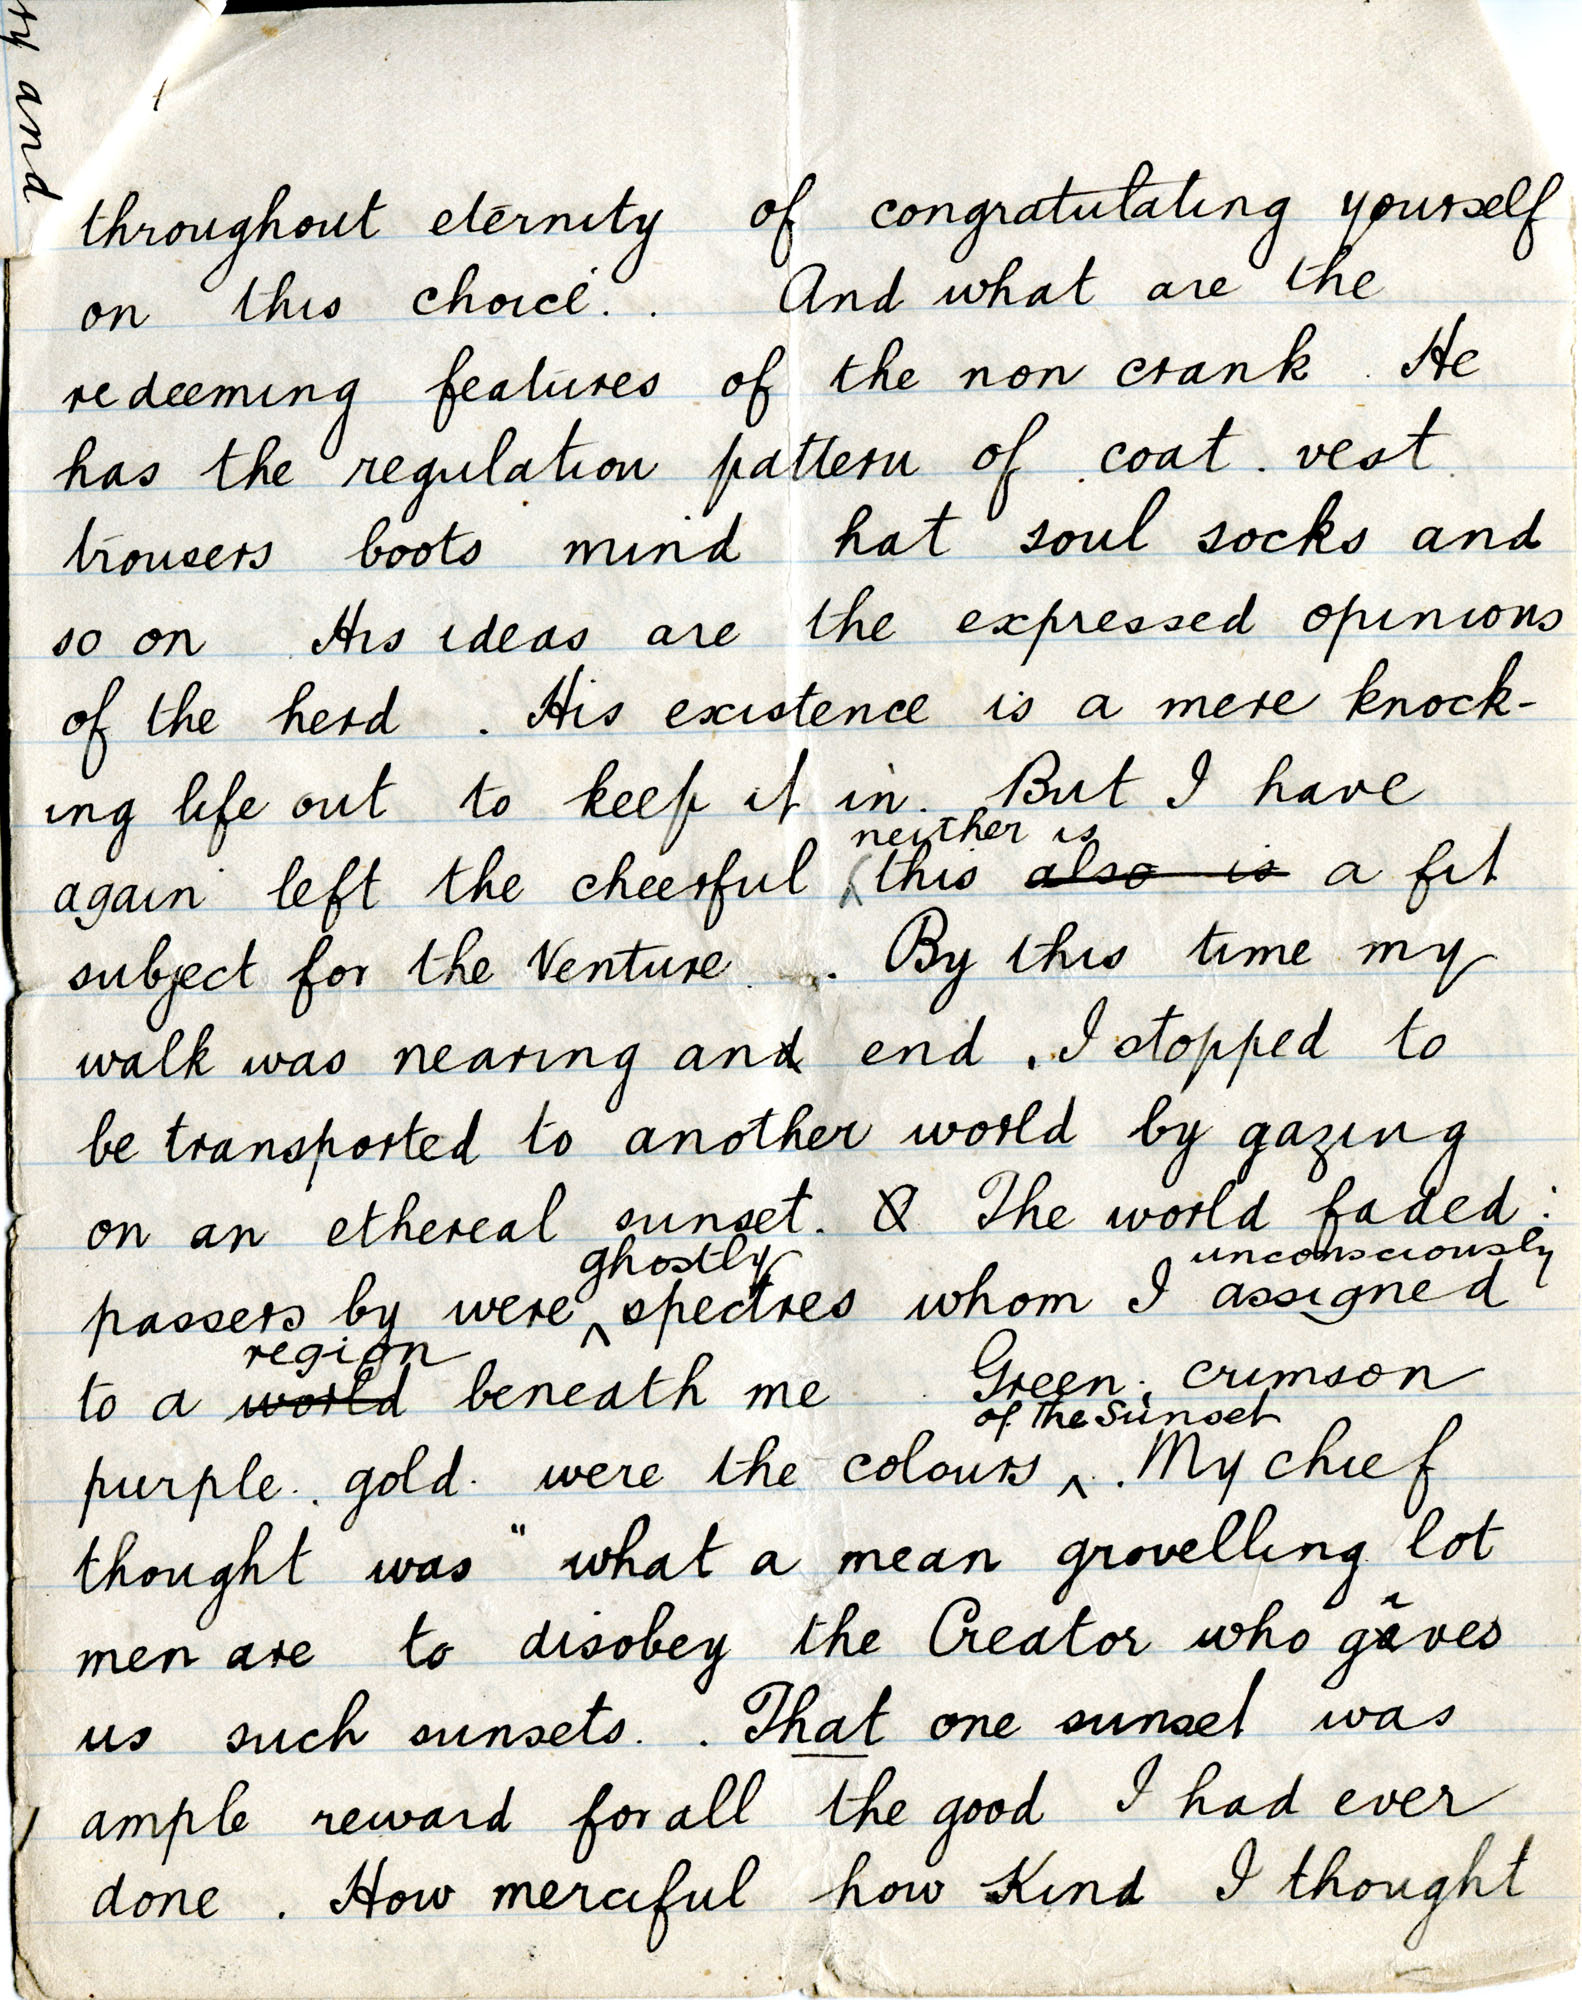 ry and
throughout eternity of congratulating yourself
on this choice. . And what are the
redeeming features of the non crank . He
has the regulation pattern of coat . vest
trousers boots mind hat soul socks and
so on . His ideas are the expressed opinions
of the herd . His existence is a mere knock-
ing life out to keep it in. But I have
neither is
again left the cheerful ^ this also is a fit
subject for the Venture . . By this time my
walk was nearing and end . I stopped to
be transported to another world by gazing
on an ethereal sunset. The world faded :
ghostly unconsciously
passers by were ^ spectres whom I assigned
region
to a world beneath me . Green . crimson
of the sunset
purple . gold . were the colours ^ . My chief
thought was " what a mean grovelling lot
men are to disobey the Creator who gives
us such sunsets. . That one sunset was
ample reward for all the good I had ever
done . How merciful how kind I thought